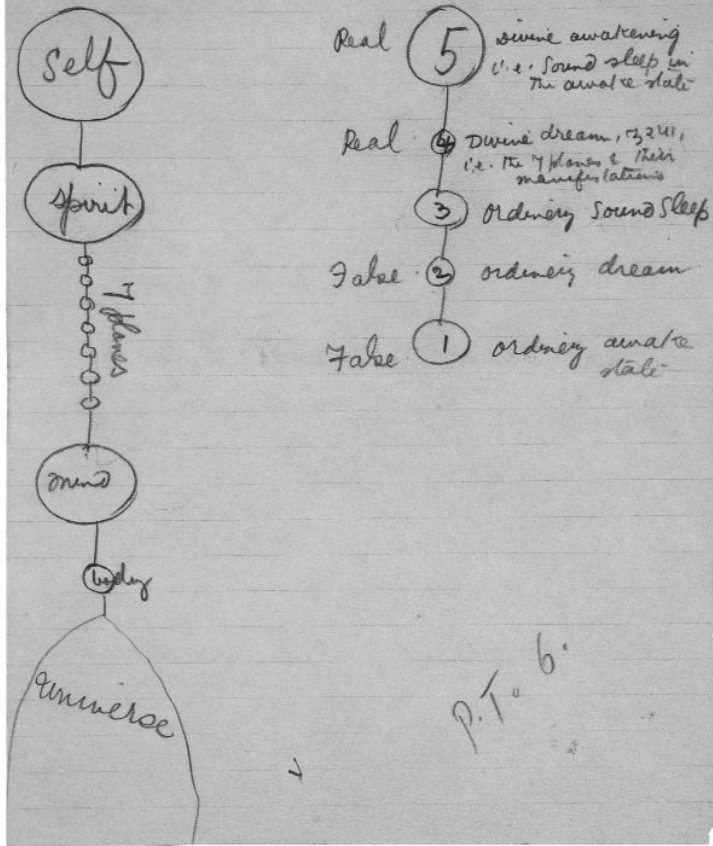 Self
Spirit
7 planes
mind
body
universe
Real 5 Divine awakening
i.e. Sound sleep in
the awake state
Real 4 Divine dream,
i.e. the 7 planes & their
manifestations
3 ordinery Sound Sleep
False 2 ordinery dream
False 1 ordinery awake
state
P.T. 6.